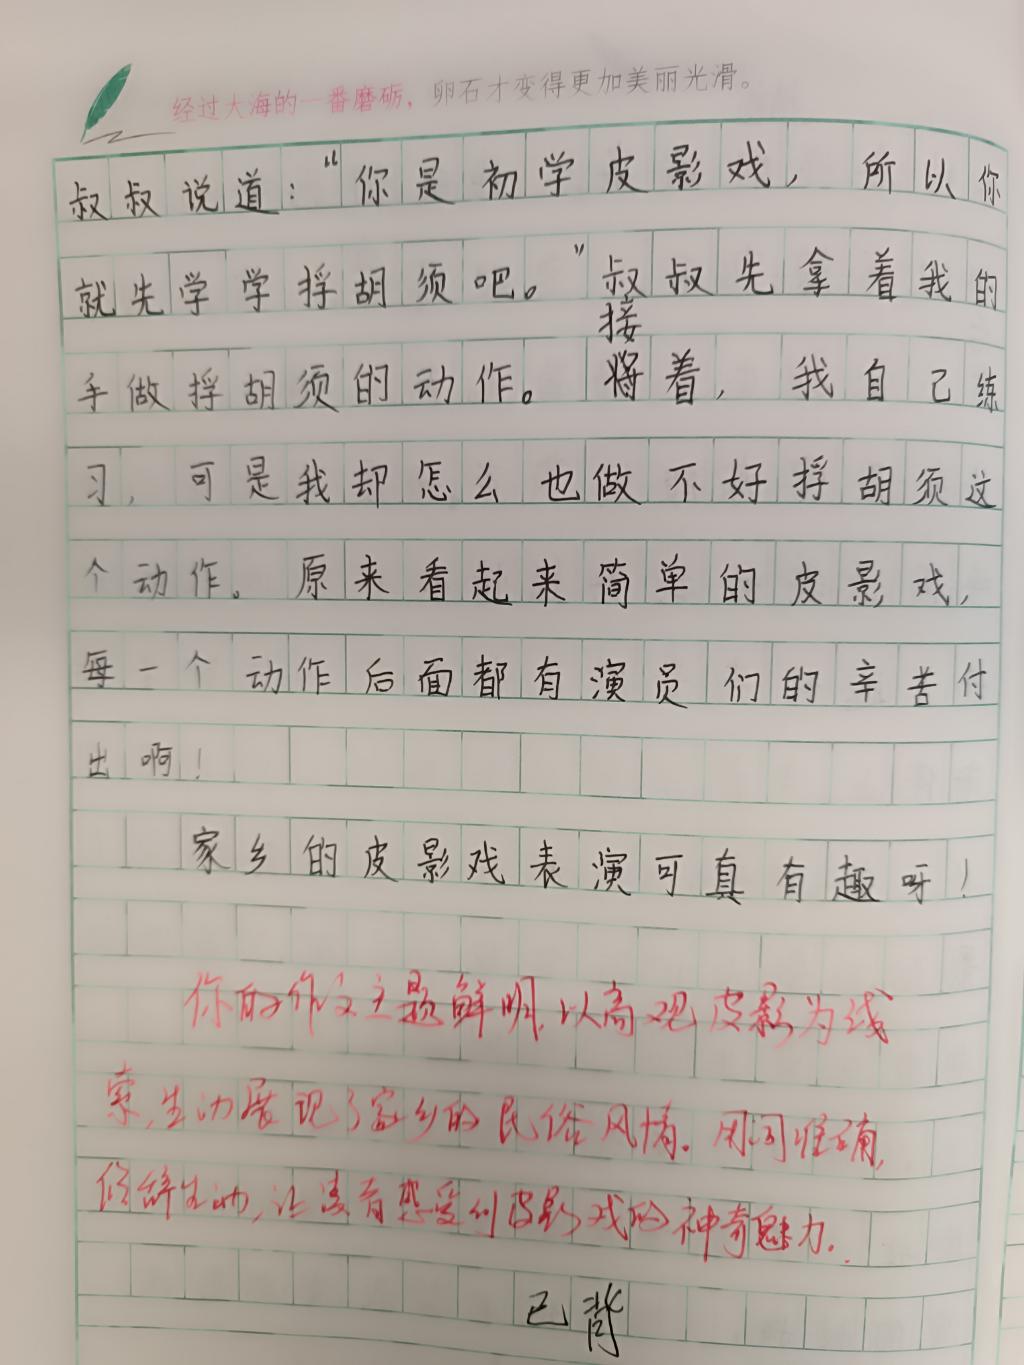 经过大海的一番磨砺，卵石才变得更加美丽光滑。
叔叔说道：“你是初学皮影戏，所以你
就先学学捋胡须吧。”叔叔先拿着我的
接
手做捋胡须的动作。将着，我自己练
习，可是我却怎么也做不好捋胡须这
个动作。原来看起来简单的皮影戏，
每一个动作后面都有演员们的辛苦付
出啊！
家乡的皮影戏表演可真有趣呀！
你的作文主题鲜明，以高观皮影为线
索，生动展现了家乡的民俗风情。用词准确，
修辞生动，让读者感受到皮影戏的神奇魅力.
已背